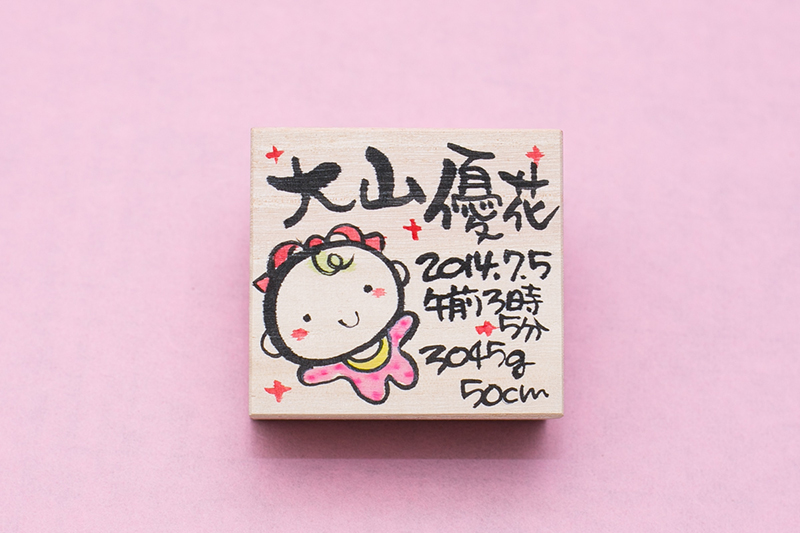 大山優花
2014.7.5
午前3時
5分
3045g
50cm